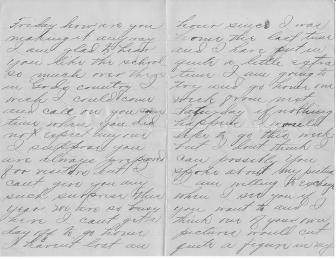 Friday how are you
making it anyway
I am glad to hear
you like the school
so much over there
in Gods country
I could come
and call on you
time when you did
not expect any one
I suppose you
are always prepared
for visitors but I
cant give you any
such surprise this
year We are so busy
here I cant get a
day off to go home
I havent lost an
hour since I was
home the last time
and I have put in
quite a little extra
time I am going to
try and go home one
week from next
Saturday if nothing
happens I would
like to go this week
but I dont think
I can possibly you
spoke about my picture
I am
when I see you if
you want to and I
think one of your own
pictures would cut
quite a figure in my